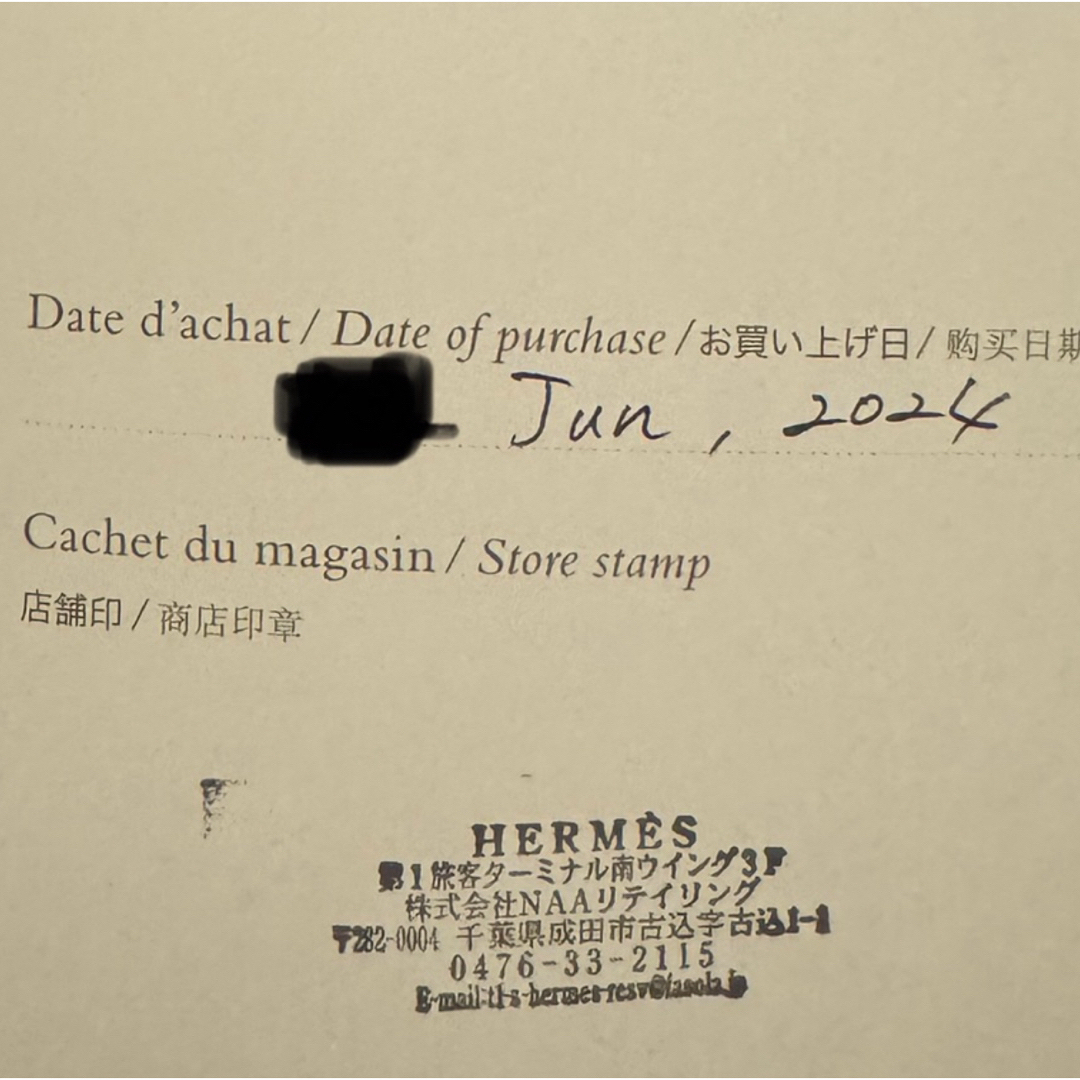 Date d'achat / Date of purchase / お買い上げ日 / 购买日期
Jun , 2024
Cachet du magasin / Store stamp
店舗印 / 商店印章
HERMÈS
第1旅客ターミナル南ウイング3F
株式会社NAAリテイリング
〒282-0004 千葉県成田市古込字古込1-1
0476-33-2115
E-mail:t1-s-hermes-resv@fasola.jp